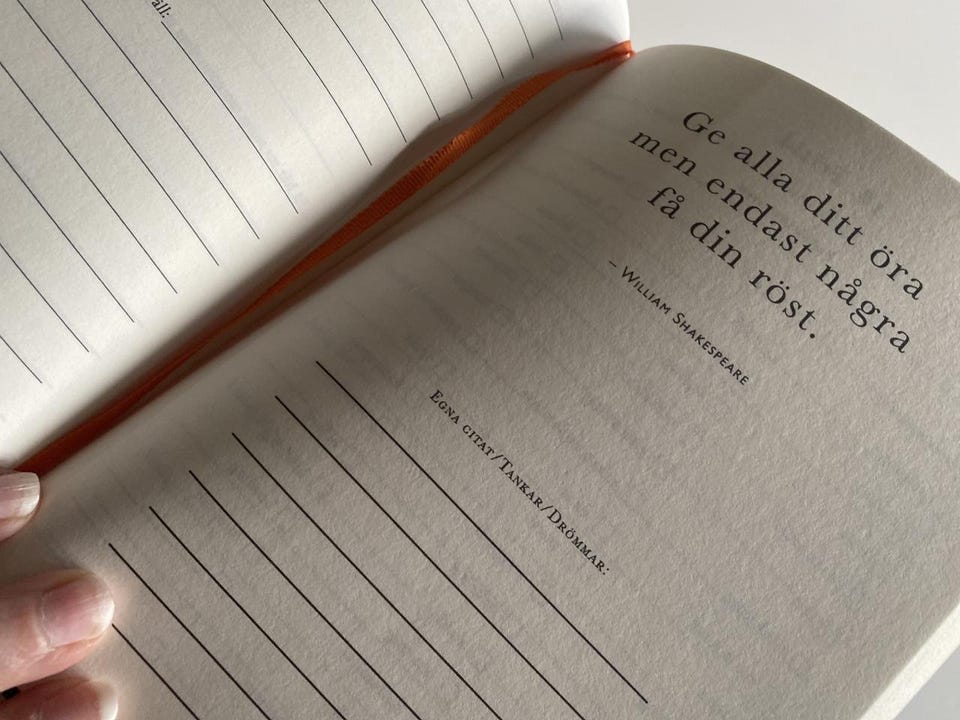 Ge alla ditt öra
men endast några
få din röst.
– William Shakespeare
Egna citat/Tankar/Drömmar: